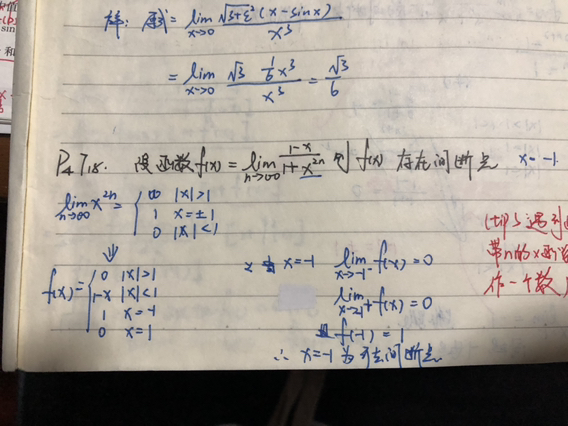 解: 原式 = lim x→0 √(3+ξ²) (x-sinx) / x³
= lim x→0 √3 1/6 x³ / x³ = √3/6
P4 T18. 设函数 f(x) = lim n→∞ (1-x)/(1+x²ⁿ) 则 f(x) 存在间断点 x=-1.
lim n→∞ x²ⁿ = { ∞ |x|>1
1 x=±1
0 |x|<1
⇓
f(x) = { 0 |x|>1
1-x |x|<1
1 x=-1
0 x=1
x=-1 lim x→-1⁻ f(x)=0
lim x→-1⁺ f(x)=0
f(-1)=1
∴ x=-1 为可去间断点
(tip) 遇到
带n的x
作一个数